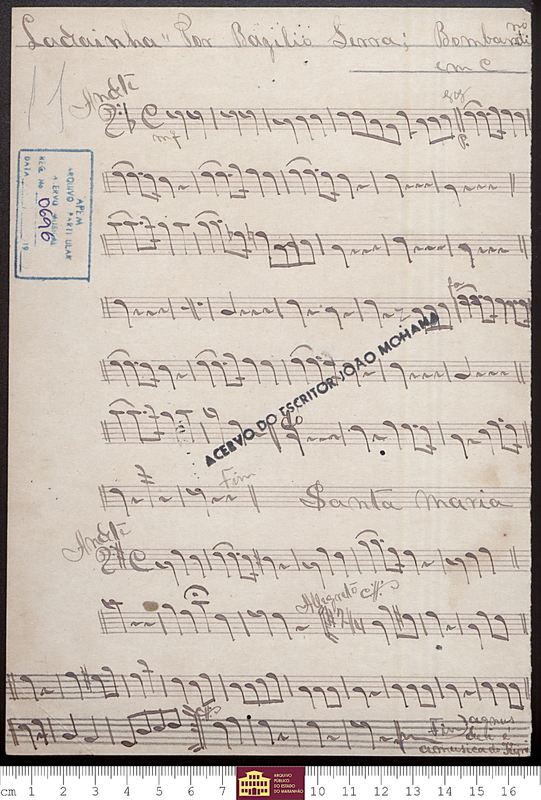 no
Ladainha" Por Bazilio Serra; Bombardi
em C
11
Andte
mf
p.
APEM
ARQUIVO PARTICULAR
REG No 0696
DATA
19
ACERVO DO ESCRITOR JOÃO MOHANA
Fim
Santa Maria
Andte
Allegreto
2/4
Fim
agnus
dei é
a musica do Kyre
cm 1 2 3 4 5 6 7 10 11 12 13 14 15 16
ARQUIVO
PÚBLICO
DO ESTADO
DO MARANHÃO